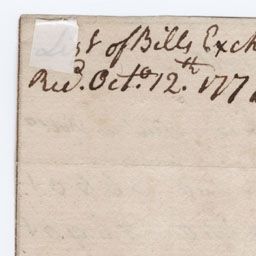 List of Bills Exch
Recd. Octo. 12.th 177